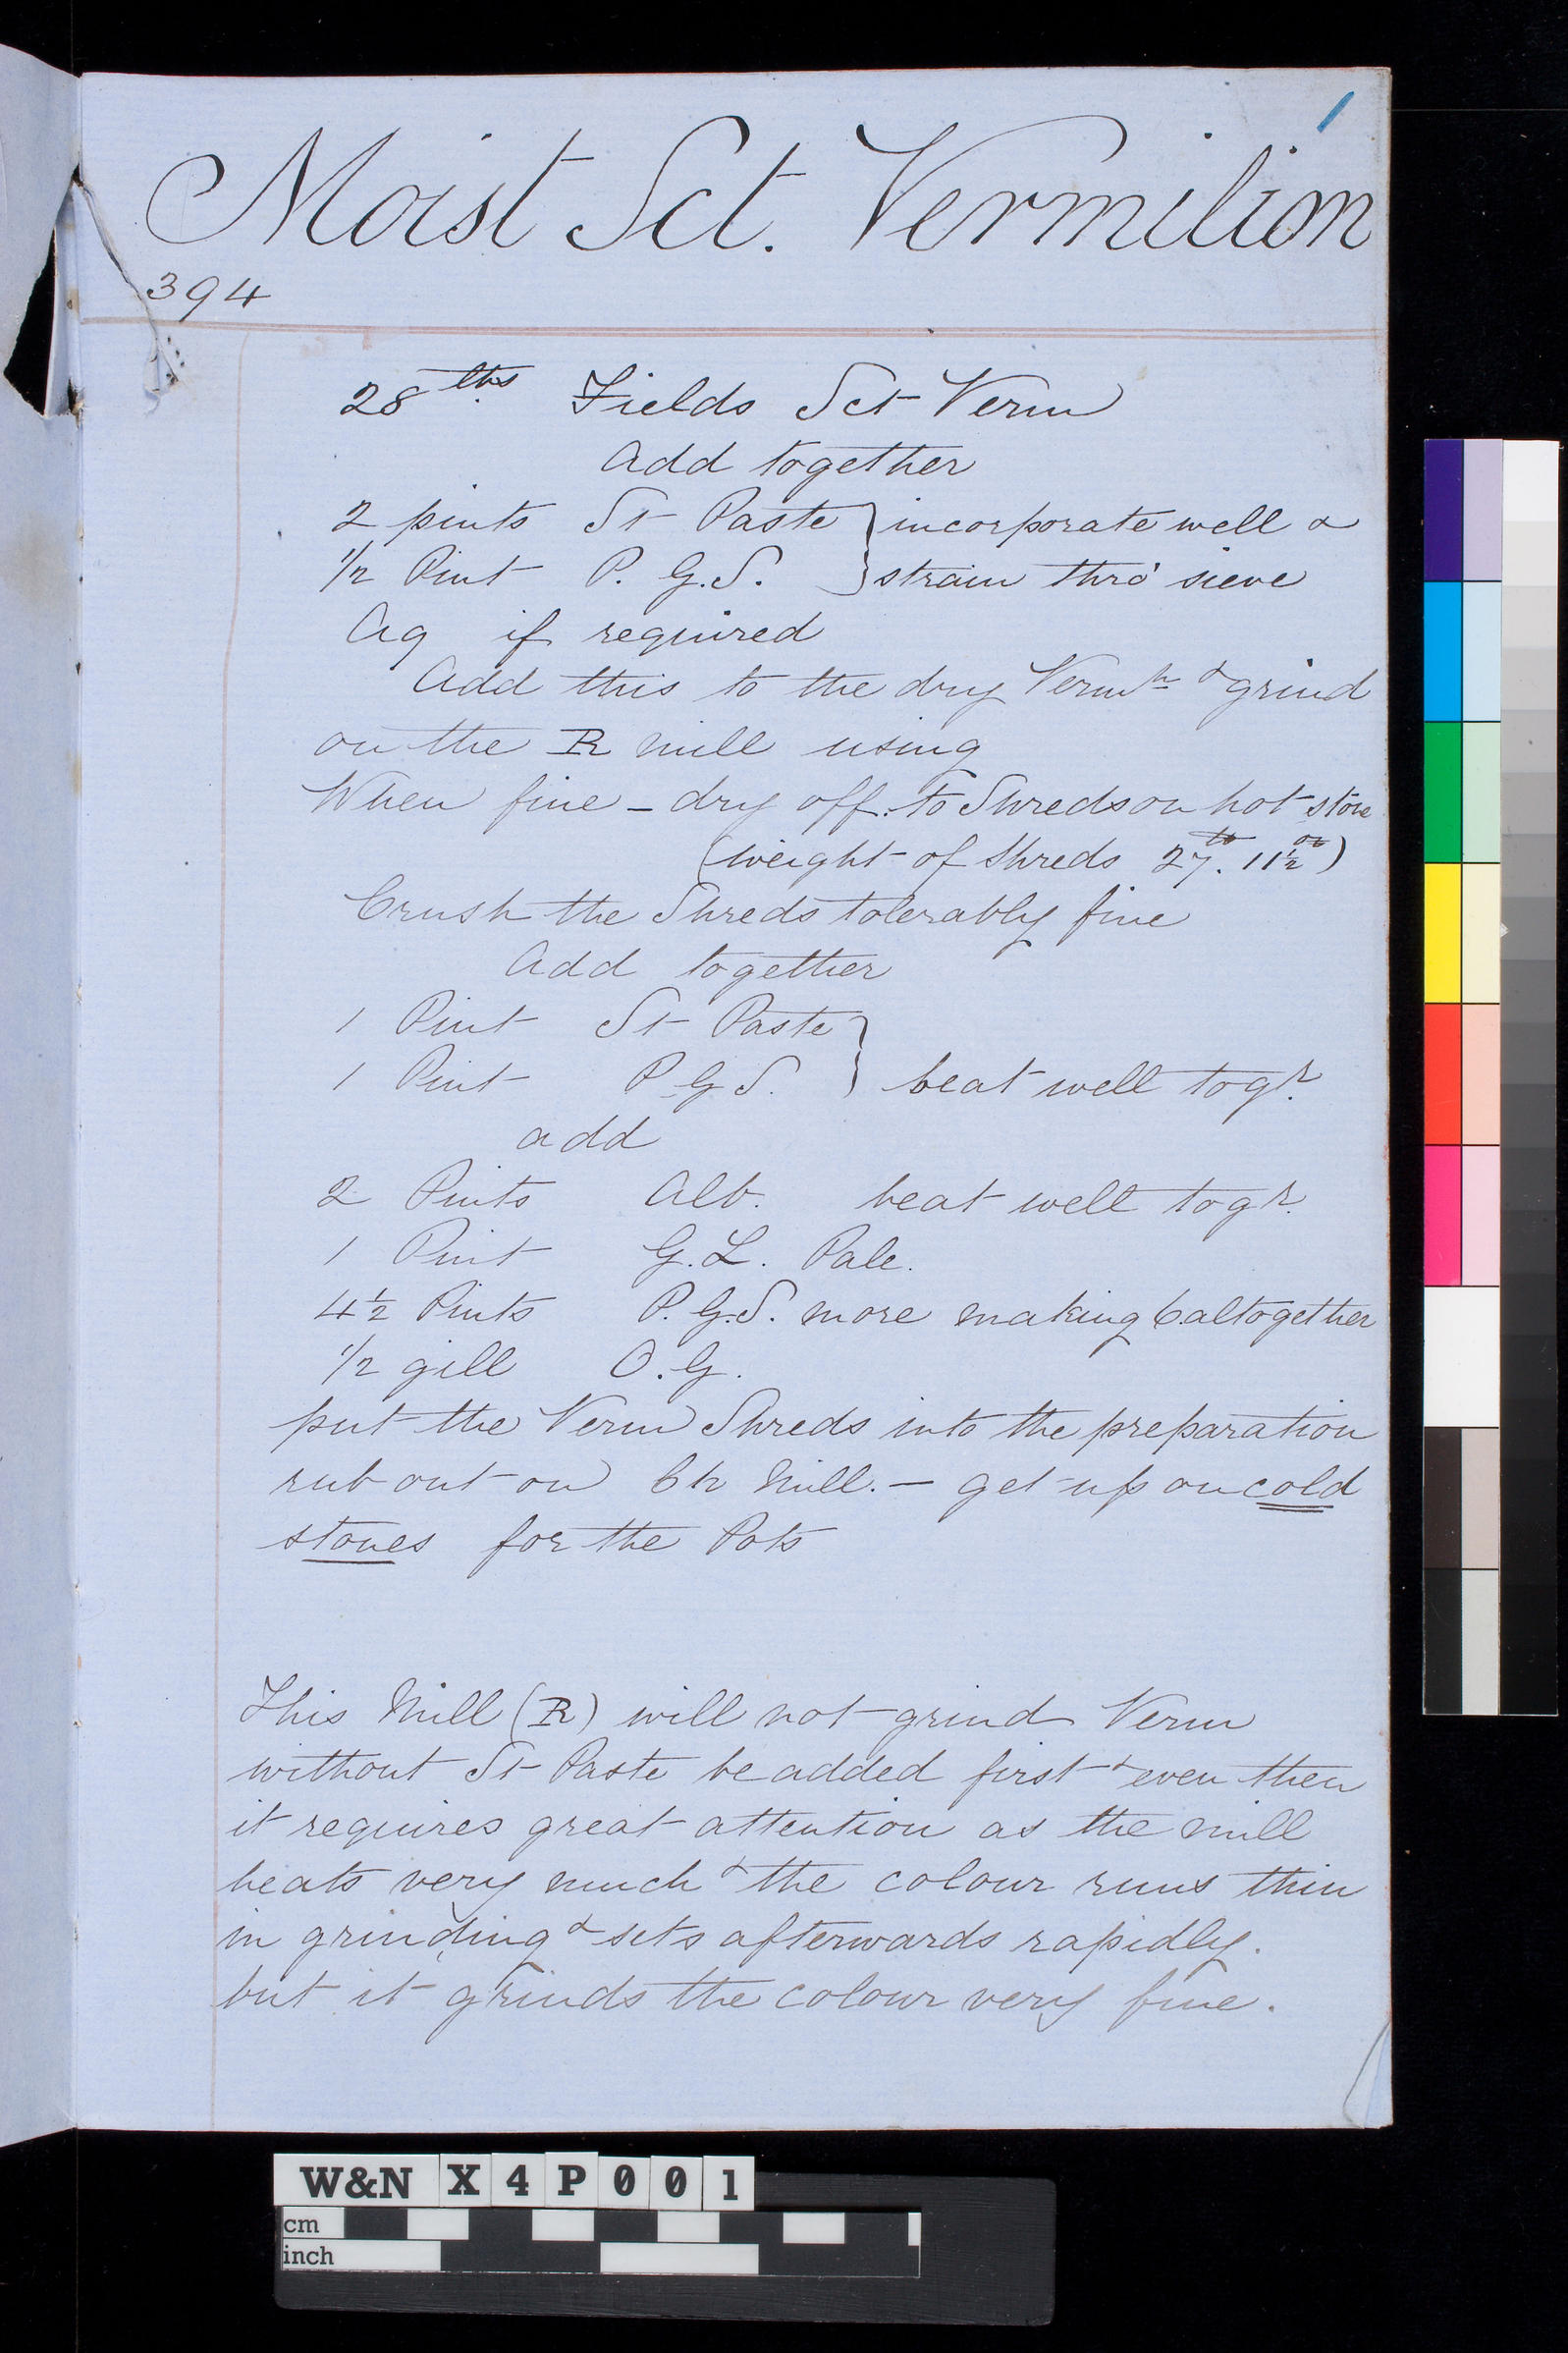 1
Moist Sct. Vermilion
394
28 lbs. Fields Sct Verm
Add together
2 pints St Paste } incorporate well &
1/2 Pint P. G.S. } strain thro' sieve
Aq if required
Add this to the dry Vermn & grind
on the R mill using
When fine - dry off. to Shreds on hot stove
(weight of Shreds 27 lb. 11 1/2 oz)
Crush the Shreds tolerably fine
Add together
1 Pint St Paste }
1 Pint P G S. } beat well togr.
add
2 Pints Alb. beat well togr.
1 Pint G.L. Pale.
4 1/2 Pints P. G.S. more making 6 altogether
1/2 gill O.G.
put the Verm Shreds into the preparation
rub out on Ch Mill. — get up on cold
stones for the Pots
This Mill (R) will not grind Verm
without St Paste be added first & even then
it requires great attention as the mill
heats very much & the colour runs thin
in grinding & sets afterwards rapidly.
but it grinds the colour very fine.
W&N X4P001
cm
inch